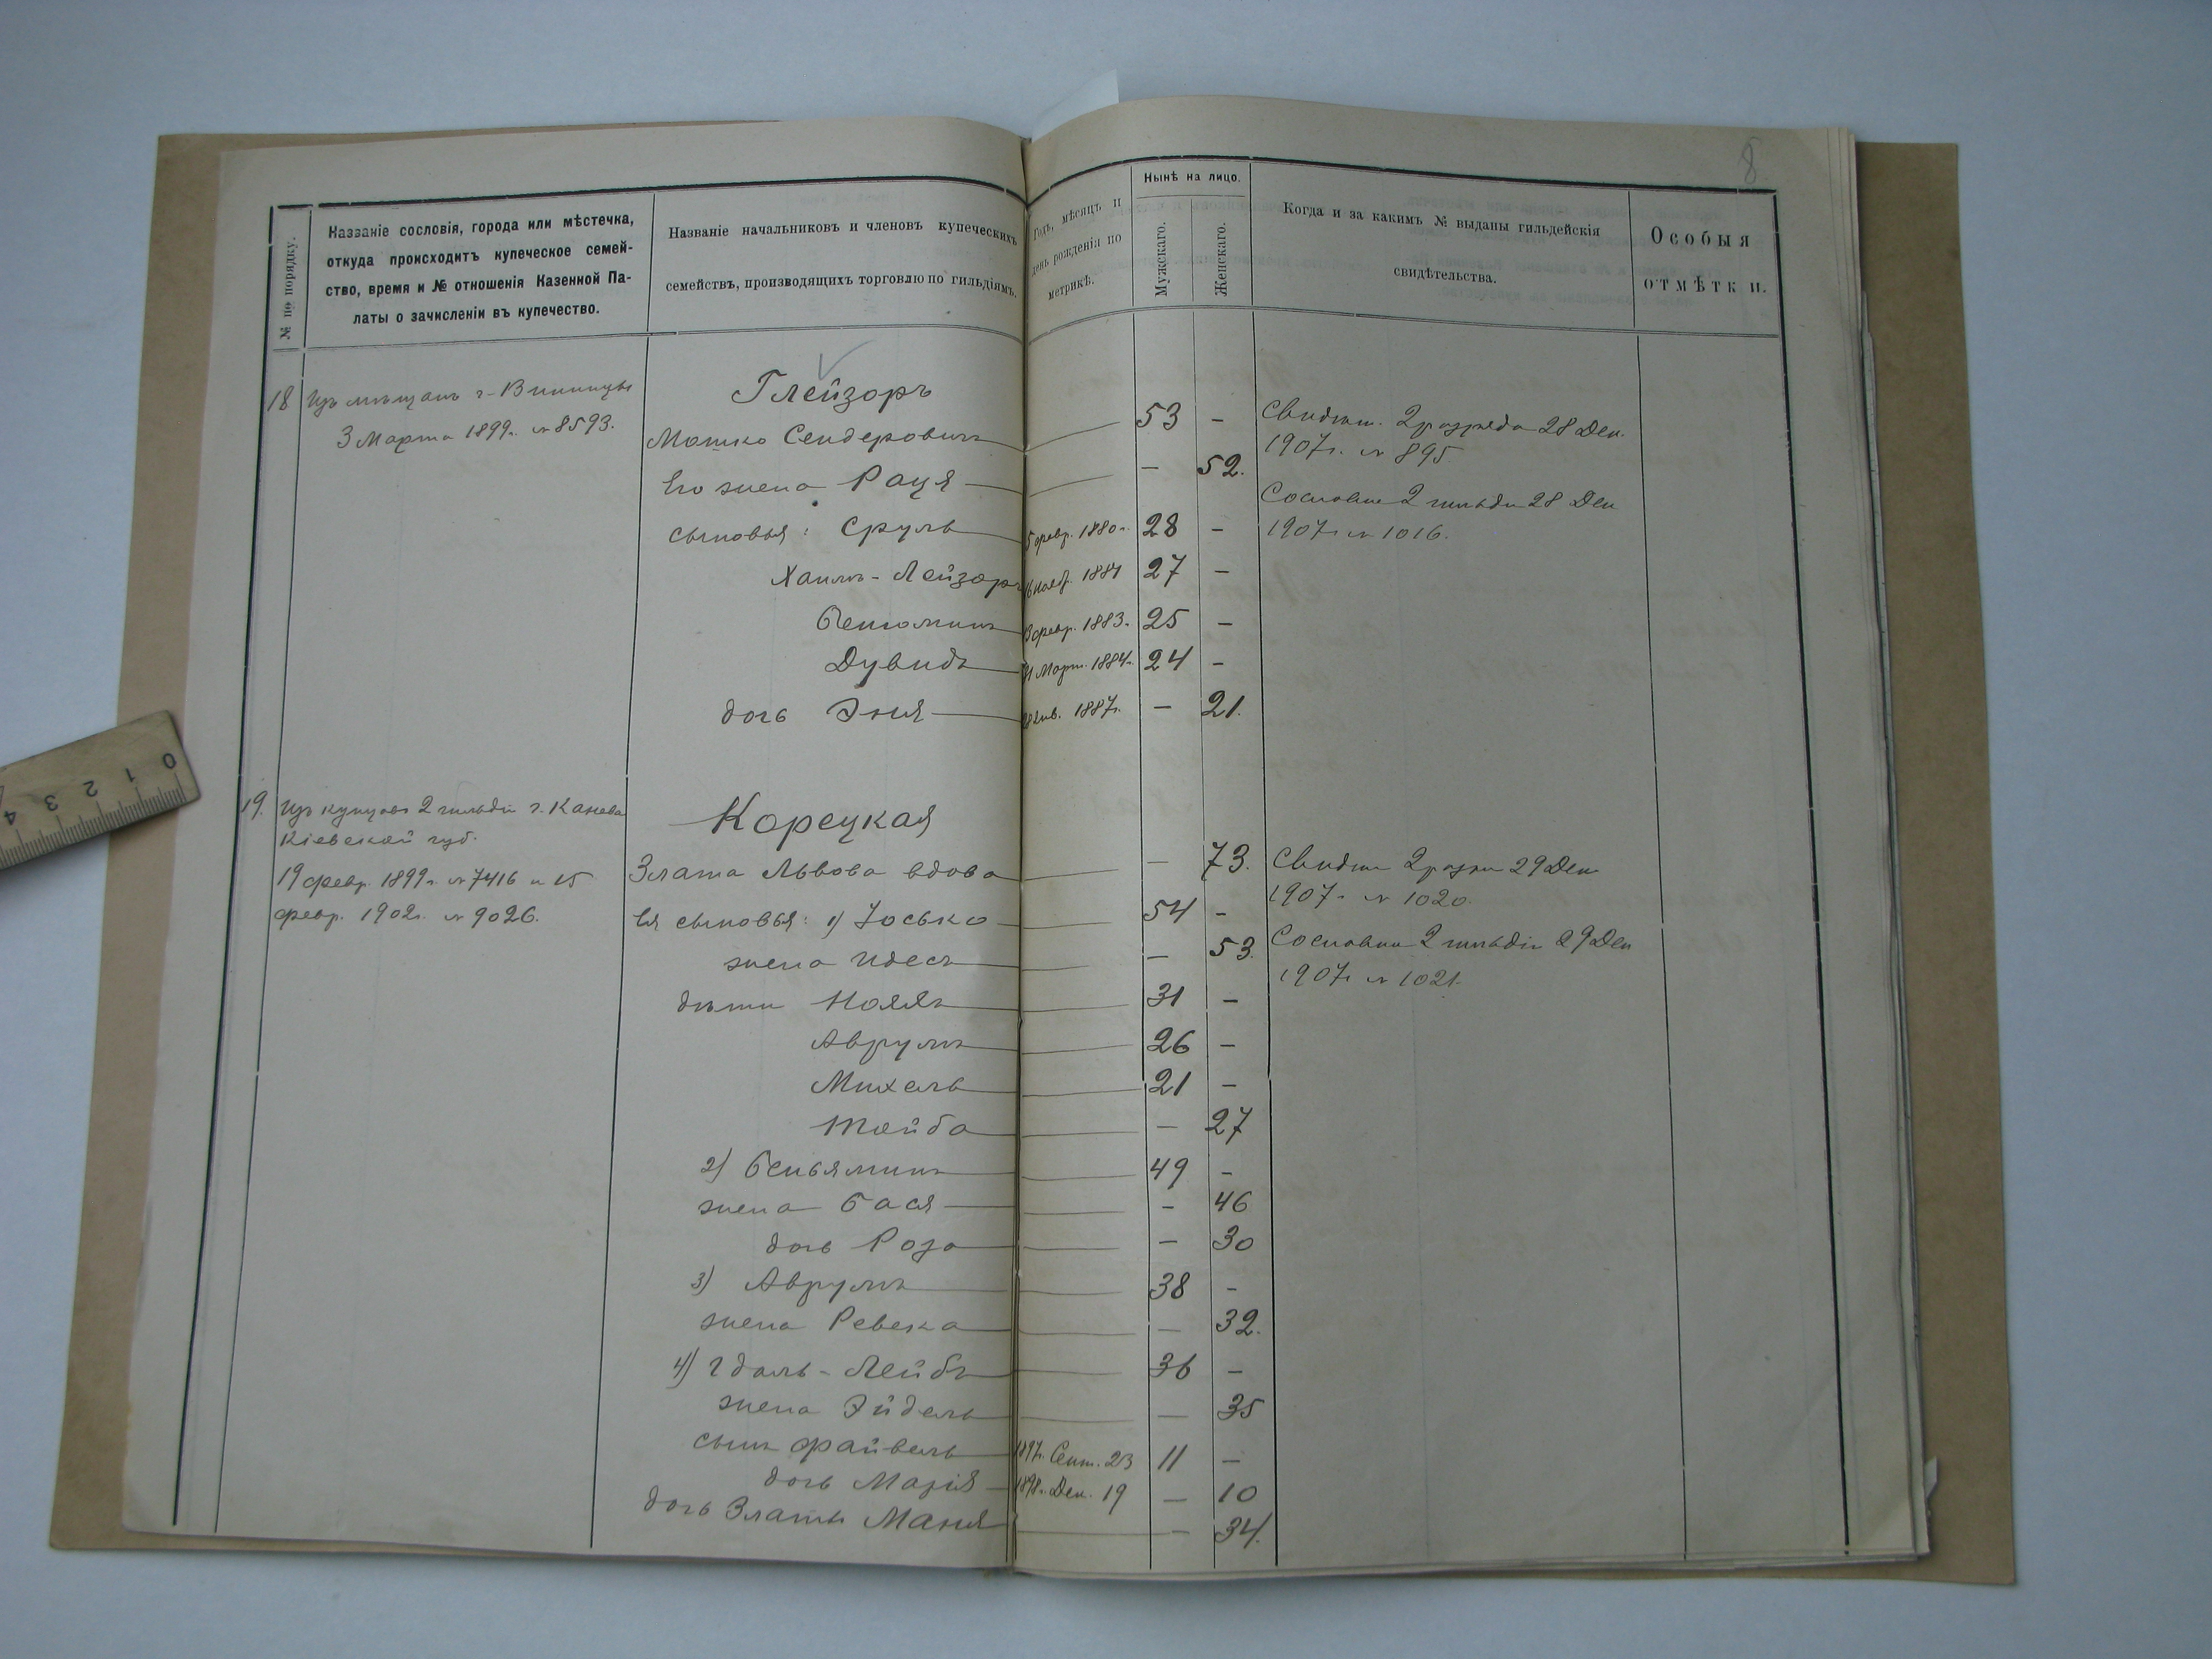 8
№ по порядку.
Названіе сословія, города или мѣстечка,
откуда происходитъ купеческое семей-
ство, время и № отношенія Казенной Па-
латы о зачисленіи въ купечество.
Названіе начальниковъ и членовъ купеческихъ
семействъ, производящихъ торговлю по гильдіямъ.
Годъ, мѣсяцъ и
день рожденія по
метрикѣ.
Нынѣ на лицо.
Мужскаго.
Женскаго.
Когда и за какимъ № выданы гильдейскія
свидѣтельства.
Особыя
отмѣтки.
18 Изъ мѣщанъ г. Винницы
3 Марта 1899г. № 8593.
Глейзоръ
Мошко Сендеровичъ 53 –
Его жена Рація – 52.
сыновья: Сруль 5 февр. 1880г. 28 –
Хаимъ-Лейзоръ 16 нояб. 1881 27 –
Бенюминъ 13 февр. 1883г. 25 –
Дувидъ Март. 1884г. 24 –
дочь Эня 28 янв. 1887г. – 21.
Свидѣт. 2 разряда 28 Дек.
1907г. № 895.
Сословное 2 гильдіи 28 Дек
1907г. № 1016.
19. Изъ купцовъ 2 гильдіи г. Канева
Кіевской губ.
19 февр. 1899г. № 7416 и 15
февр. 1902г. № 9026.
Корецкая
Злата Львова вдова – 73.
Ея сыновья: 1) Іосько 54 –
жена Идесъ – 53.
дѣти Нояхъ 31 –
Аврумъ 26 –
Михель 21 –
Тойба – 27
2) Беньяминъ 49 –
жена Бася – 46
дочь Роза – 30
3) Аврумъ 38 –
жена Ревека – 32.
4) Гдаль-Лейбъ 36 –
жена Эйдель – 35
сынъ Файвель 1897г. Сент. 23 11 –
дочь Марія 1898г. Дек. 19 – 10
дочь Златы Маня – 34.
Свидѣт 2 разр 29 Дек
1907г. № 1020.
Сословное 2 гильдіи 29 Дек
1907г № 1021.
0 1 2 3 4